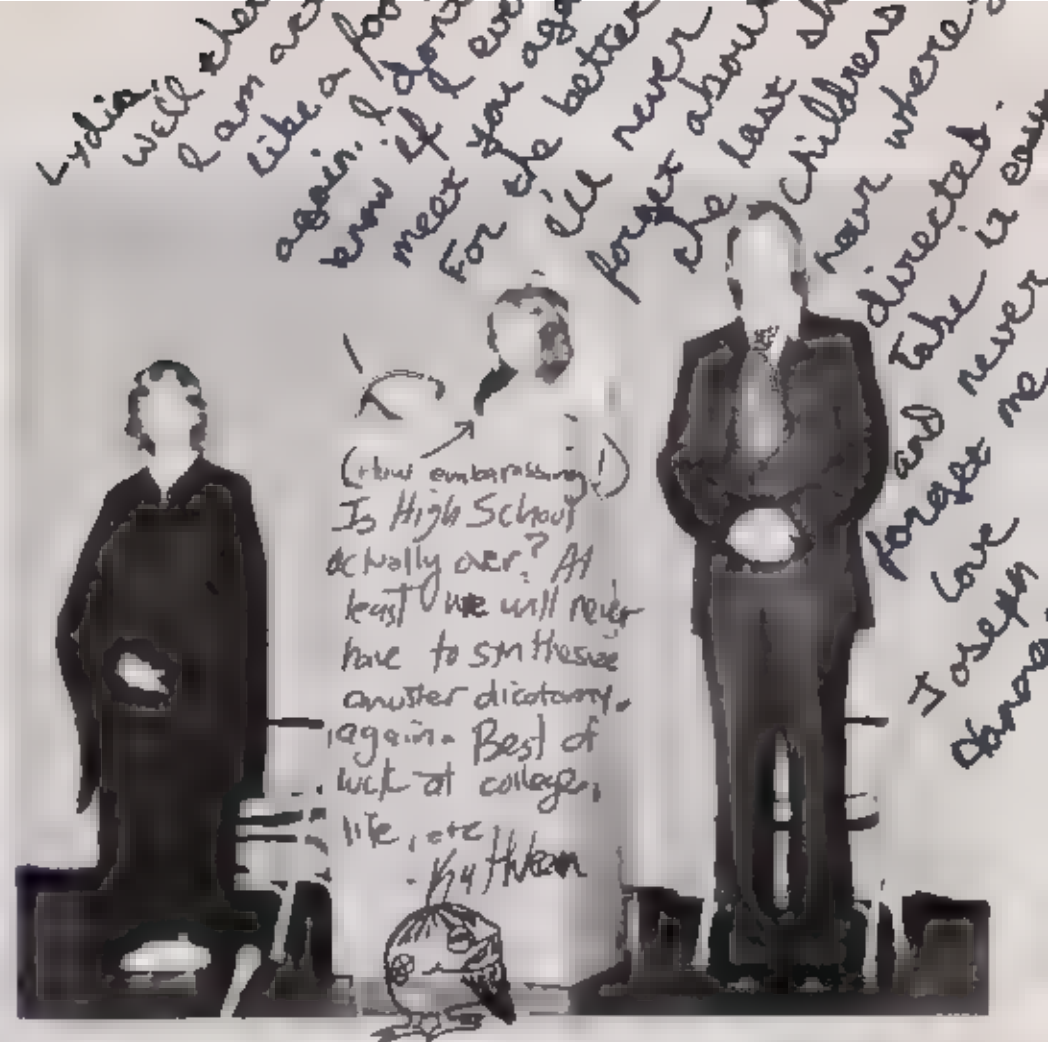 Lydia,
Well then
I am
like a
again. I don't
know if I ever
meet you
For the better
I'll never
forget about
the last
Childrens
hour where
directed.
Take it easy
and never
forget me
Love
Joseph
(How embarassing!)
Is High School
actually over? At
least we will never
have to synthesize
dicotomy
again. Best of
luck at college,
life, etc
- Kathleen